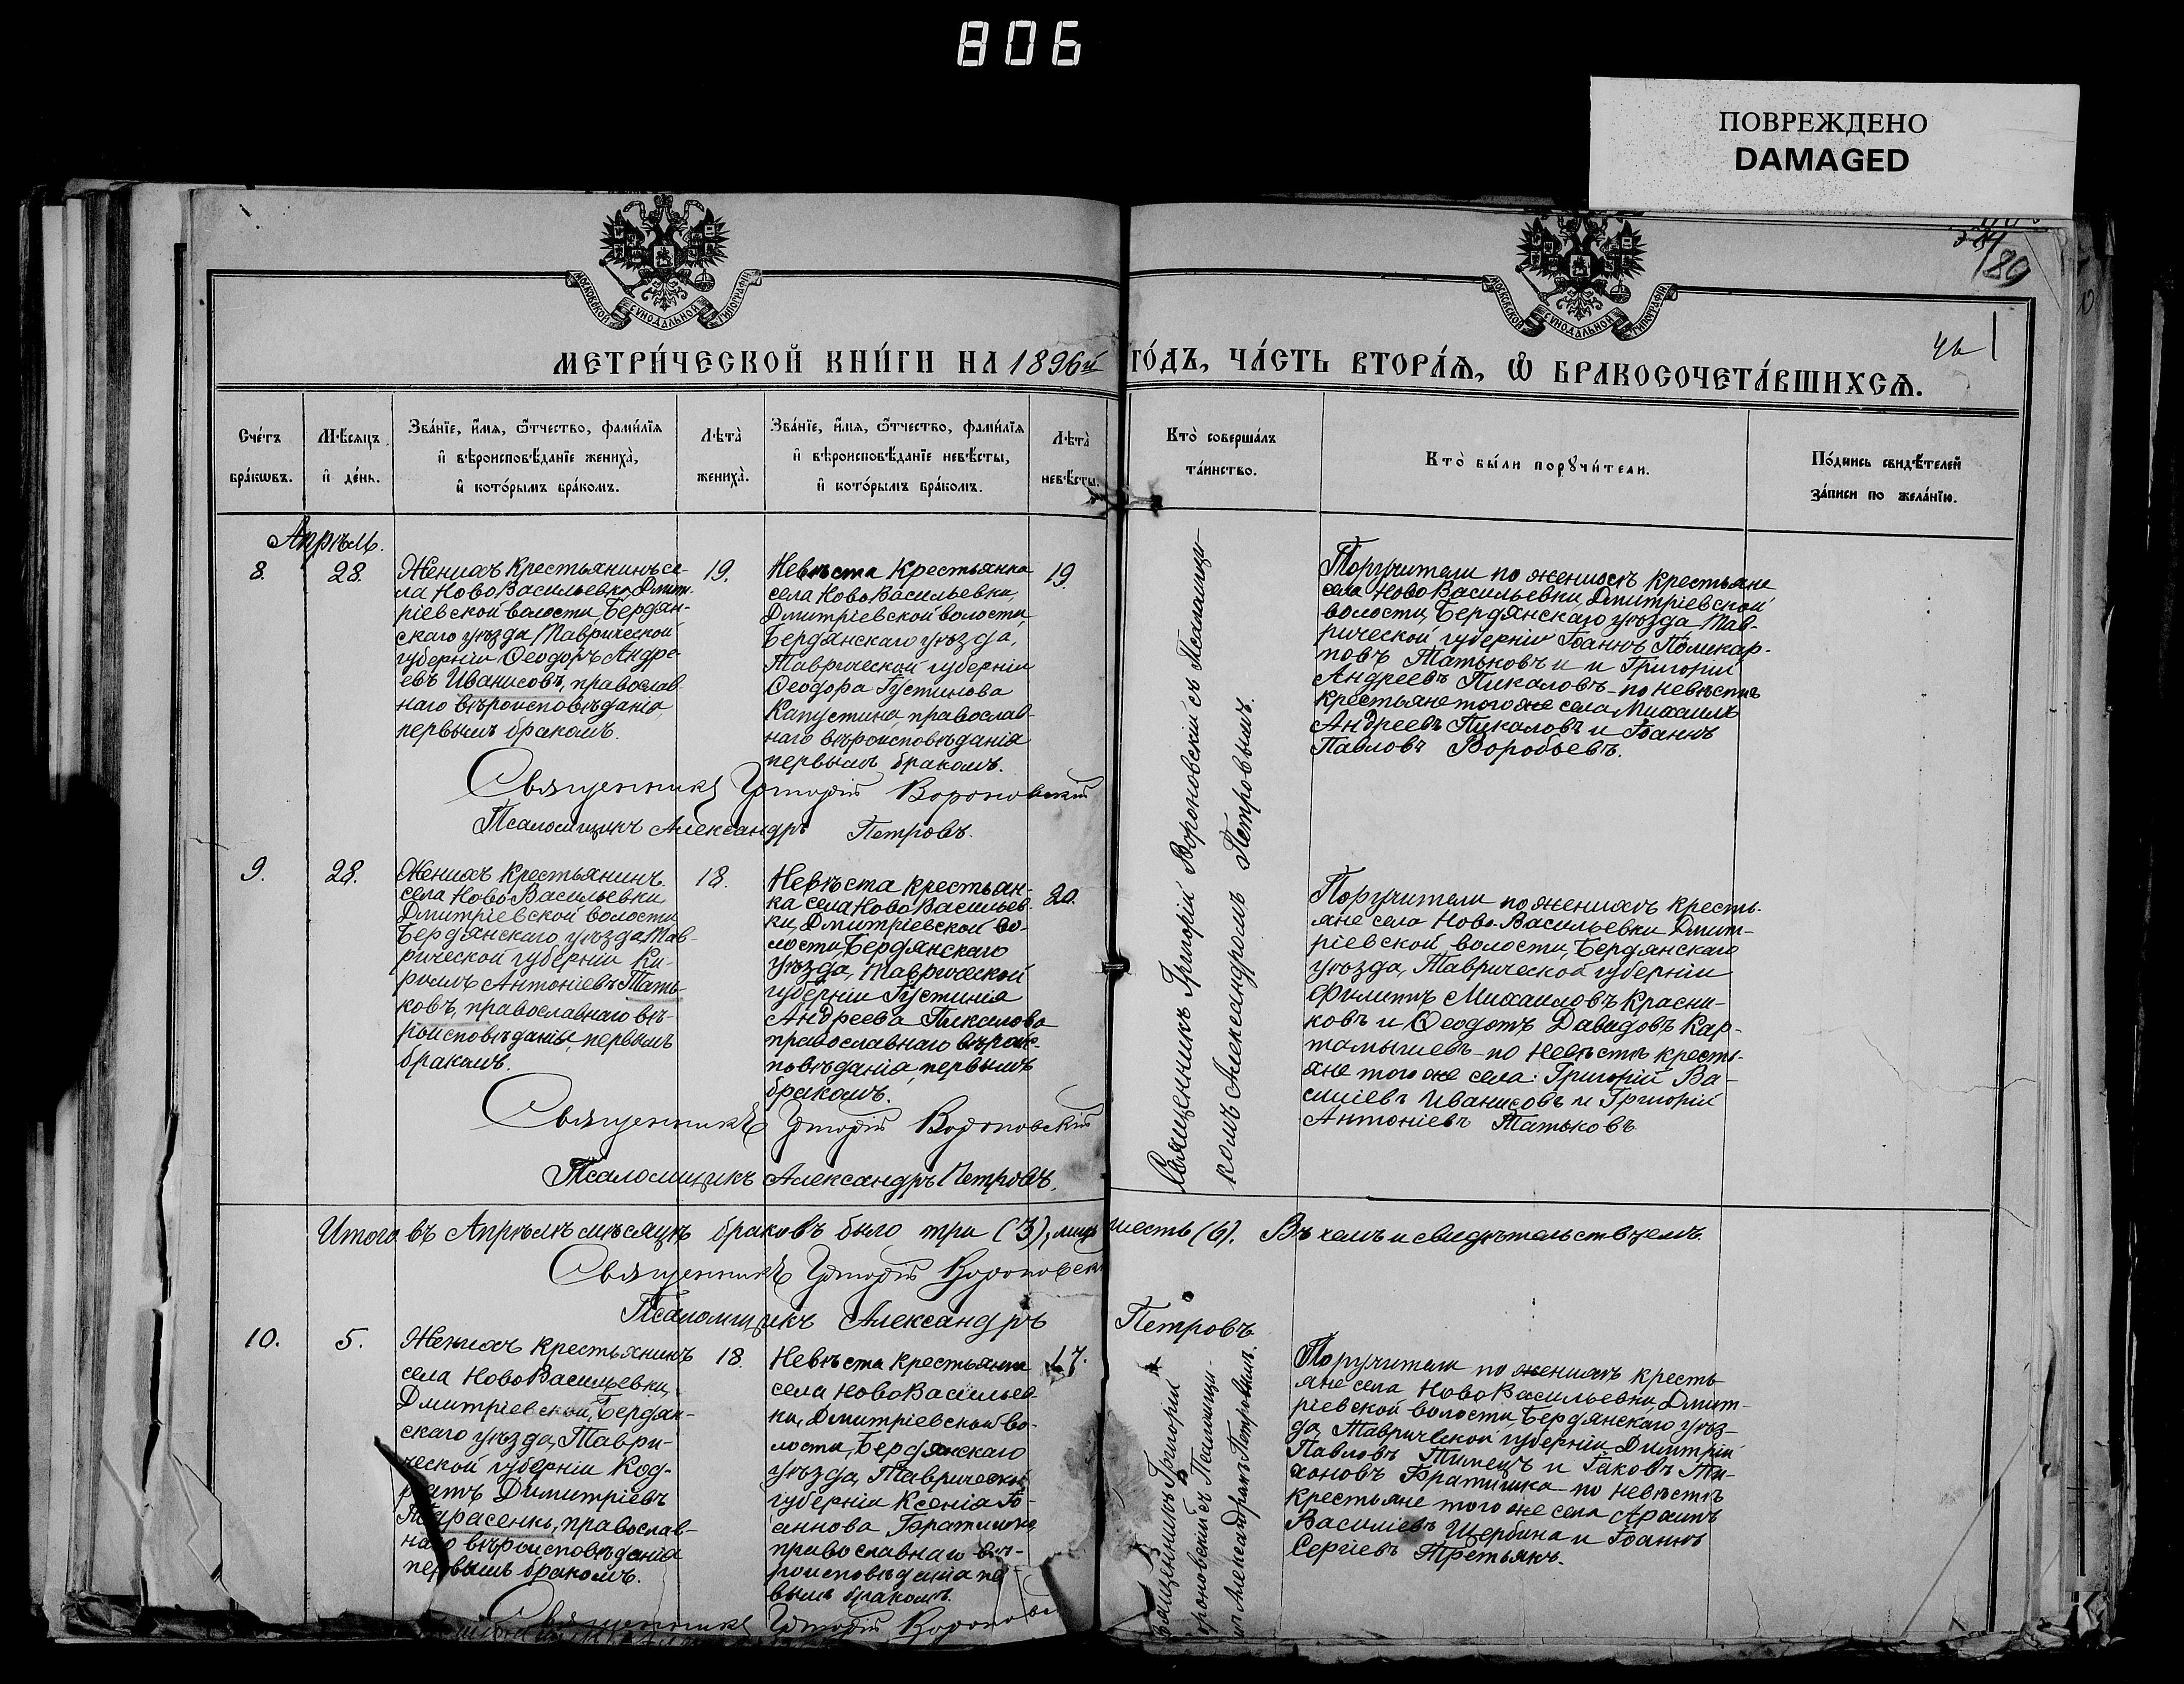 806
ПОВРЕЖДЕНО
DAMAGED
89
МОСКОВСКОЙ СѴНОДАЛЬНОЙ ТИПОГРАФІИ
МОСКОВСКОЙ СѴНОДАЛЬНОЙ ТИПОГРАФІИ
МЕТРИ́ЧЕСКОЙ КНИ́ГИ НА 1896й ГО́ДЪ, ЧА́СТЬ ВТОРА́Ѧ, Ѽ БРАКОСОЧЕТА́ВШИХСѦ.
Сче́тъ
бра́кѡвъ.
Мѣ́сяцъ
и҆ де́нь.
Зва́нїе, и҆́мѧ, ѻ҆́тчество, фами́лїѧ
и҆ вѣроисповѣ́данїе жениха̀,
и҆ кото́рымъ бра́комъ.
Лѣта̀
жениха̀.
Зва́нїе, и҆́мѧ, ѻ҆́тчество, фами́лїѧ
и҆ вѣроисповѣ́данїе невѣ́сты,
и҆ кото́рымъ бра́комъ.
Лѣта̀
невѣ́сты.
Кто̀ соверша́лъ
та́инство.
Кто̀ бы́ли порꙋчи́тели.
По́дпись свидѣ́телей
за́писи по жела́нїю.
Апрѣль.
8.
28.
Женихъ крестьянинъ се-
ла НовоВасильевки Дмит-
ріевской волости, Бердян-
скаго уѣзда Таврической
губерніи Ѳеодоръ Андре-
евъ Иванисовъ, православ-
наго вѣроисповѣданія,
первымъ бракомъ.
19.
Невѣста крестьянка
села НовоВасильевки,
Дмитріевской волости,
Бердянскаго уѣзда,
Таврической губерніи
Ѳеодора Густинова
Капустина православ-
наго вѣроисповѣданія
первымъ бракомъ.
19.
Поручители по женихѣ крестьяне
села НовоВасильевки, Дмитріевской
волости, Бердянскаго уѣзда Тав-
рической губерніи Іоаннъ Поликар-
повъ Татьковъ и и Григорій
Андреевъ Пикаловъ - по невѣстѣ
крестьяне того же села, Михаилъ
Андреевъ Пикаловъ и Іоаннъ
Павловъ Воробьевъ.
Священникъ Григорій Вороновскій
Псаломщикъ Александръ Петровъ.
9.
28.
Женихъ крестьянинъ
села НовоВасильевки,
Дмитріевской волости
Бердянскаго уѣзда, Тав-
рической губерніи Ки-
риллъ Антоніевъ Тать-
ковъ, православнаго вѣ-
роисповѣданія, первымъ
бракомъ.
18.
Невѣста крестьян-
ка села НовоВасильев-
ки, Дмитріевской во-
лости, Бердянскаго
уѣзда, Таврической
губерніи Густинія
Андреева Пикалова
православнаго вѣроис-
повѣданія, первымъ
бракомъ.
20.
Поручители по женихѣ кресть-
яне села Ново-Васильевки Дмит-
ріевской волости, Бердянскаго
уѣзда, Таврической губерніи
Филиппъ Михаиловъ Красни-
ковъ и Ѳеодотъ Давидовъ Кар-
тамышевъ - по невѣстѣ кресть-
яне того же села: Григорій Ва-
силіевъ Иванисовъ и Григорій
Антоніевъ Татьковъ
Священникъ Григорій Вороновскій съ Псаломщи-
комъ Александромъ Петровымъ.
Священникъ Григорій Вороновскій
Псаломщикъ Александръ Петровъ.
Итого въ Апрѣлѣ мѣсяцѣ браковъ было три (3), лицъ шесть (6). Въ чемъ и свидѣтельствуемъ.
Священникъ Григорій Вороновск
Псаломщикъ Александръ Петровъ
10.
5.
Женихъ крестьянинъ
села НовоВасильевки,
Дмитріевской, Бердян-
скаго уѣзда, Таври-
ческой губерніи Код-
ратъ Димитріевъ
Тарасенко, православ-
наго вѣроисповѣданія
первымъ бракомъ.
18.
Невѣста крестьянка
села НовоВасильев-
ки, Дмитріевской во-
лости, Бердянскаго
уѣзда, Таврической
губерніи Ксенія Іо-
аннова Братишка
православнаго вѣ-
роисповѣданія пер-
вымъ бракомъ.
17.
Священникъ Григорій
Вороновскій съ Псаломщи-
комъ Александромъ Петровымъ.
Поручители по женихѣ кресть-
яне села НовоВасильевки, Дмит-
ріевской волости, Бердянскаго уѣз-
да, Таврической губерніи Димитрій
Павловъ Тимецъ и Іаковъ Ти-
хоновъ Братишка по невѣстѣ
крестьяне того же села Архипъ
Василіевъ Щербина и Іоаннъ
Сергіевъ Третьякъ.
Священникъ Григорій Воронов